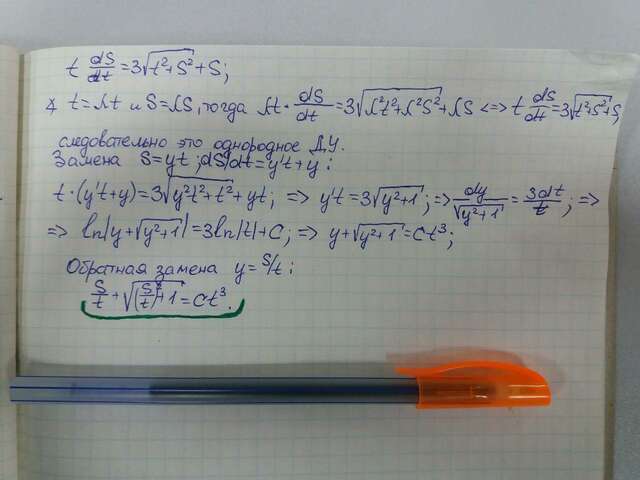 t dS/dt = 3√(t²+S²) + S;
∀ t = λt и S = λS, тогда λt · dS/dt = 3√(λ²t²+λ²S²) + λS <=> t dS/dt = 3√(t²+S²) + S,
следовательно это однородное Д.У.
Замена S = yt; dS/dt = y't + y:
t·(y't+y) = 3√(y²t²+t²) + yt; => y't = 3√(y²+1); => dy/√(y²+1) = 3dt/t; =>
=> ln|y+√(y²+1)| = 3ln|t| + C; => y+√(y²+1) = Ct³;
Обратная замена y = S/t:
S/t + √((S/t)²+1) = Ct³.